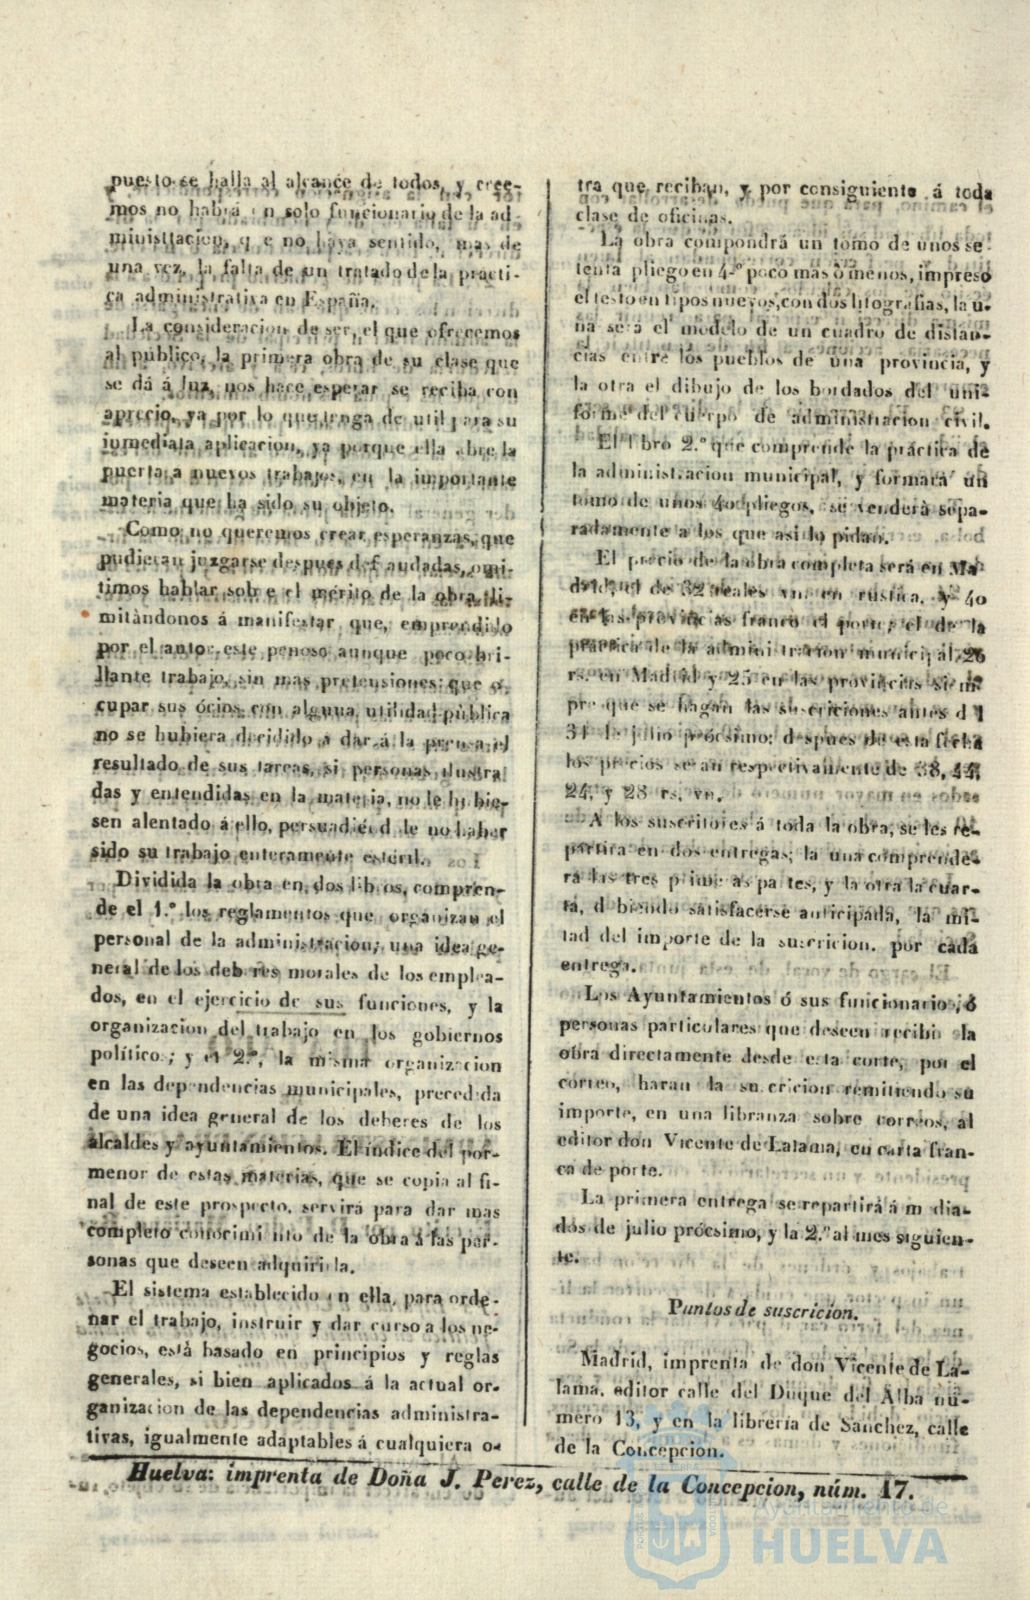 puesto se halla al alcance de todos, y cree-
mos no habrá un solo funcionario de la ad-
ministtacion, q e no haya sentido, mas de
una vez, la falta de un tratado de la practi-
ca administrativa en España.
La consideracion de ser, el que ofrecemos
al público, la primera obra de su clase que
se dá á luz, nos hace esperar se reciba con
aprecio, ya por lo que tenga de util para su
inmediata aplicacion, ya porque ella abre la
puerta a nuevos trabajos, en la importante
materia que ha sido su objeto.
Como no queremos crear esperanzas, que
pudieran juzgarse despues def audadas, omi-
timos hablar sob e el mérito de la obra, li-
mitándonos á manifestar que, emprendido
por el autor este penoso aunque poco bri-
llante trabajo, sin mas pretensiones que o-
cupar sus ócios con alguna utilidad pública
no se hubiera decidido a dar á la prensa el
resultado de sus tareas, si personas ilustra
das y entendidas en la materia, no le hubie-
sen alentado á ello, persuadiéndole no haber
sido su trabajo enteramente estéril.
Dividida la obra en dos libros, compren-
de el 1.º los reglamentos que organizan el
personal de la administracion; una idea ge-
neral de los deberes morales de los emplea-
dos, en el ejercicio de sus funciones, y la
organizacion del trabajo en los gobiernos
político ; y el 2.º, la misma organizacion
en las dependencias municipales, precedida
de una idea general de los deberes de los
alcaldes y ayuntamientos. El índice del por-
menor de estas materias, que se copia al fi-
nal de este prospecto, servirá para dar mas
completo conocimi nto de la obra á las per-
sonas que deseen adquirirla.
El sistema establecido en ella, para orde-
nar el trabajo, instruir y dar curso a los ne-
gocios, está basado en principios y reglas
generales, si bien aplicados á la actual or-
ganizacion de las dependencias administra-
tivas, igualmente adaptables á cualquiera o-
tra que reciban, y por consiguiente á toda
clase de oficinas.
La obra compondrá un tomo de unos se-
tenta pliego en 4.º poco mas ó menos, impreso
el testo en tipos nuevos, con dos litografias, la u-
na será el modelo de un cuadro de distan-
cias entre los pueblos de una provincia, y
la otra el dibujo de los bordados del uni-
forme del cuerpo de administracion civil.
El libro 2.º que comprende la práctica de
la administracion municipal, y formará un
tomo de unos 40 pliegos, se venderá sepa-
radamente a los que asi lo pidan.
El precio de la obra completa será en Ma
drid, el de 32 reales vn. en rustica, y 40
en las provincias franco el porte; el de la
práctica de la administracion municipal 20
rs. en Madrid y 25 en las provincias siem
pre que se hagan las suscriciones antes d l
31 de julio prócsimo: d spues de esta fecha
los precios serán respectivamente de 38, 44,
24, y 28 rs. vn.
A los suscritores á toda la obra, se les re-
partirá en dos entregas; la una comprende-
rá las tres prime as pa tes, y la otra la cuar-
ta, d biendo satisfacerse anticipada, la mi-
tad del importe de la suscricion. por cada
entrega.
Los Ayuntamientos ó sus funcionario , ó
personas particulares que deseen recibir la
obra directamente desde esta corte, por el
correo, haran la su cricion remitiendo su
importe, en una libranza sobre correos, al
editor don Vicente de Lalama, en carta fran-
ca de porte.
La primera entrega se repartirá á m dia-
dos de julio prócsimo, y la 2.ª al mes siguien-
te.
Puntos de suscricion.
Madrid, imprenta de don Vicente de La-
lama, editor calle del Duque del Alba nú-
mero 13, y en la librería de Sanchez, calle
de la Concepcion.
Huelva: imprenta de Doña J. Perez, calle de la Concepcion, núm. 17.
Ayuntamiento de
HUELVA